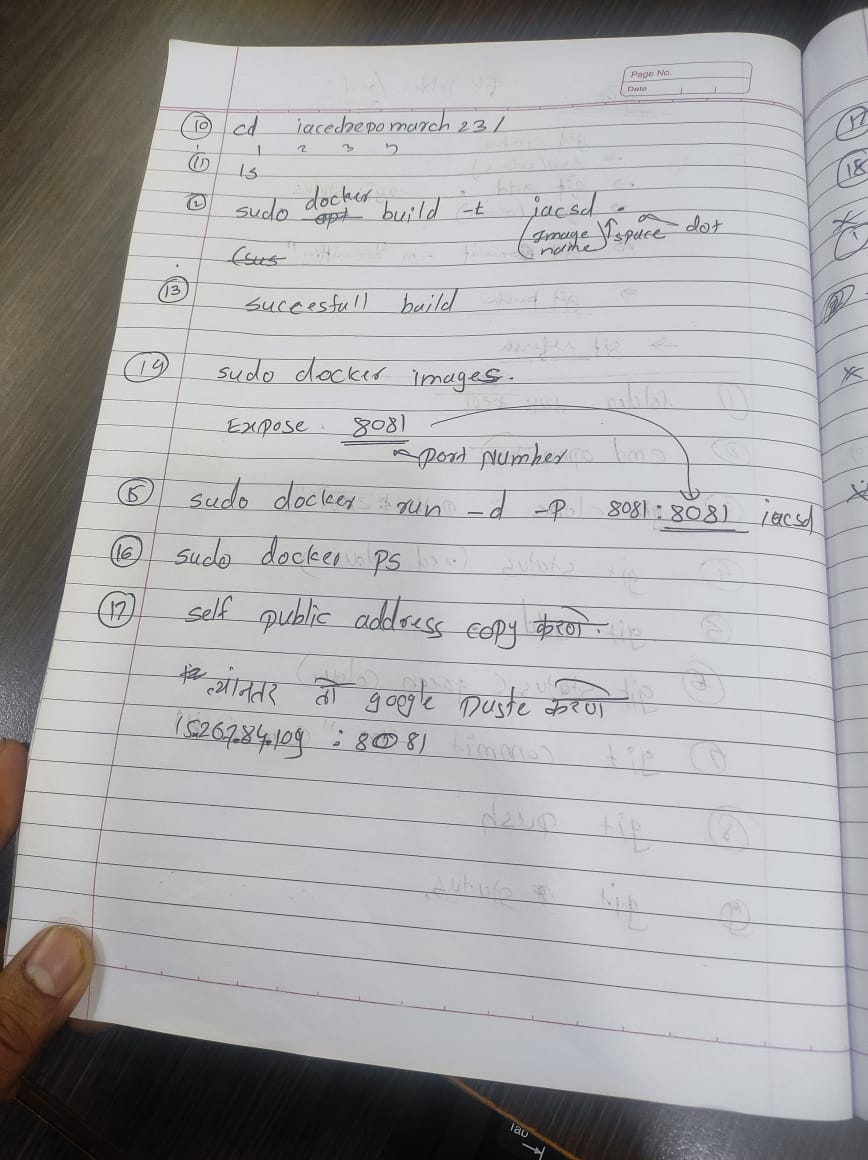 Page No.
Date
⑩ cd iacedrepomarch23/
⑪ ls
sudo docker build -t iacsd .
(Image name) ↑ space dot
⑬ succesfull build
⑭ sudo docker images.
Expose 8081
Port Number
⑮ sudo docker run -d -P 8081:8081 iacsd
⑯ sudo docker ps
⑰ self public address copy करणे.
त्यानंतर google paste करणे
: 8081